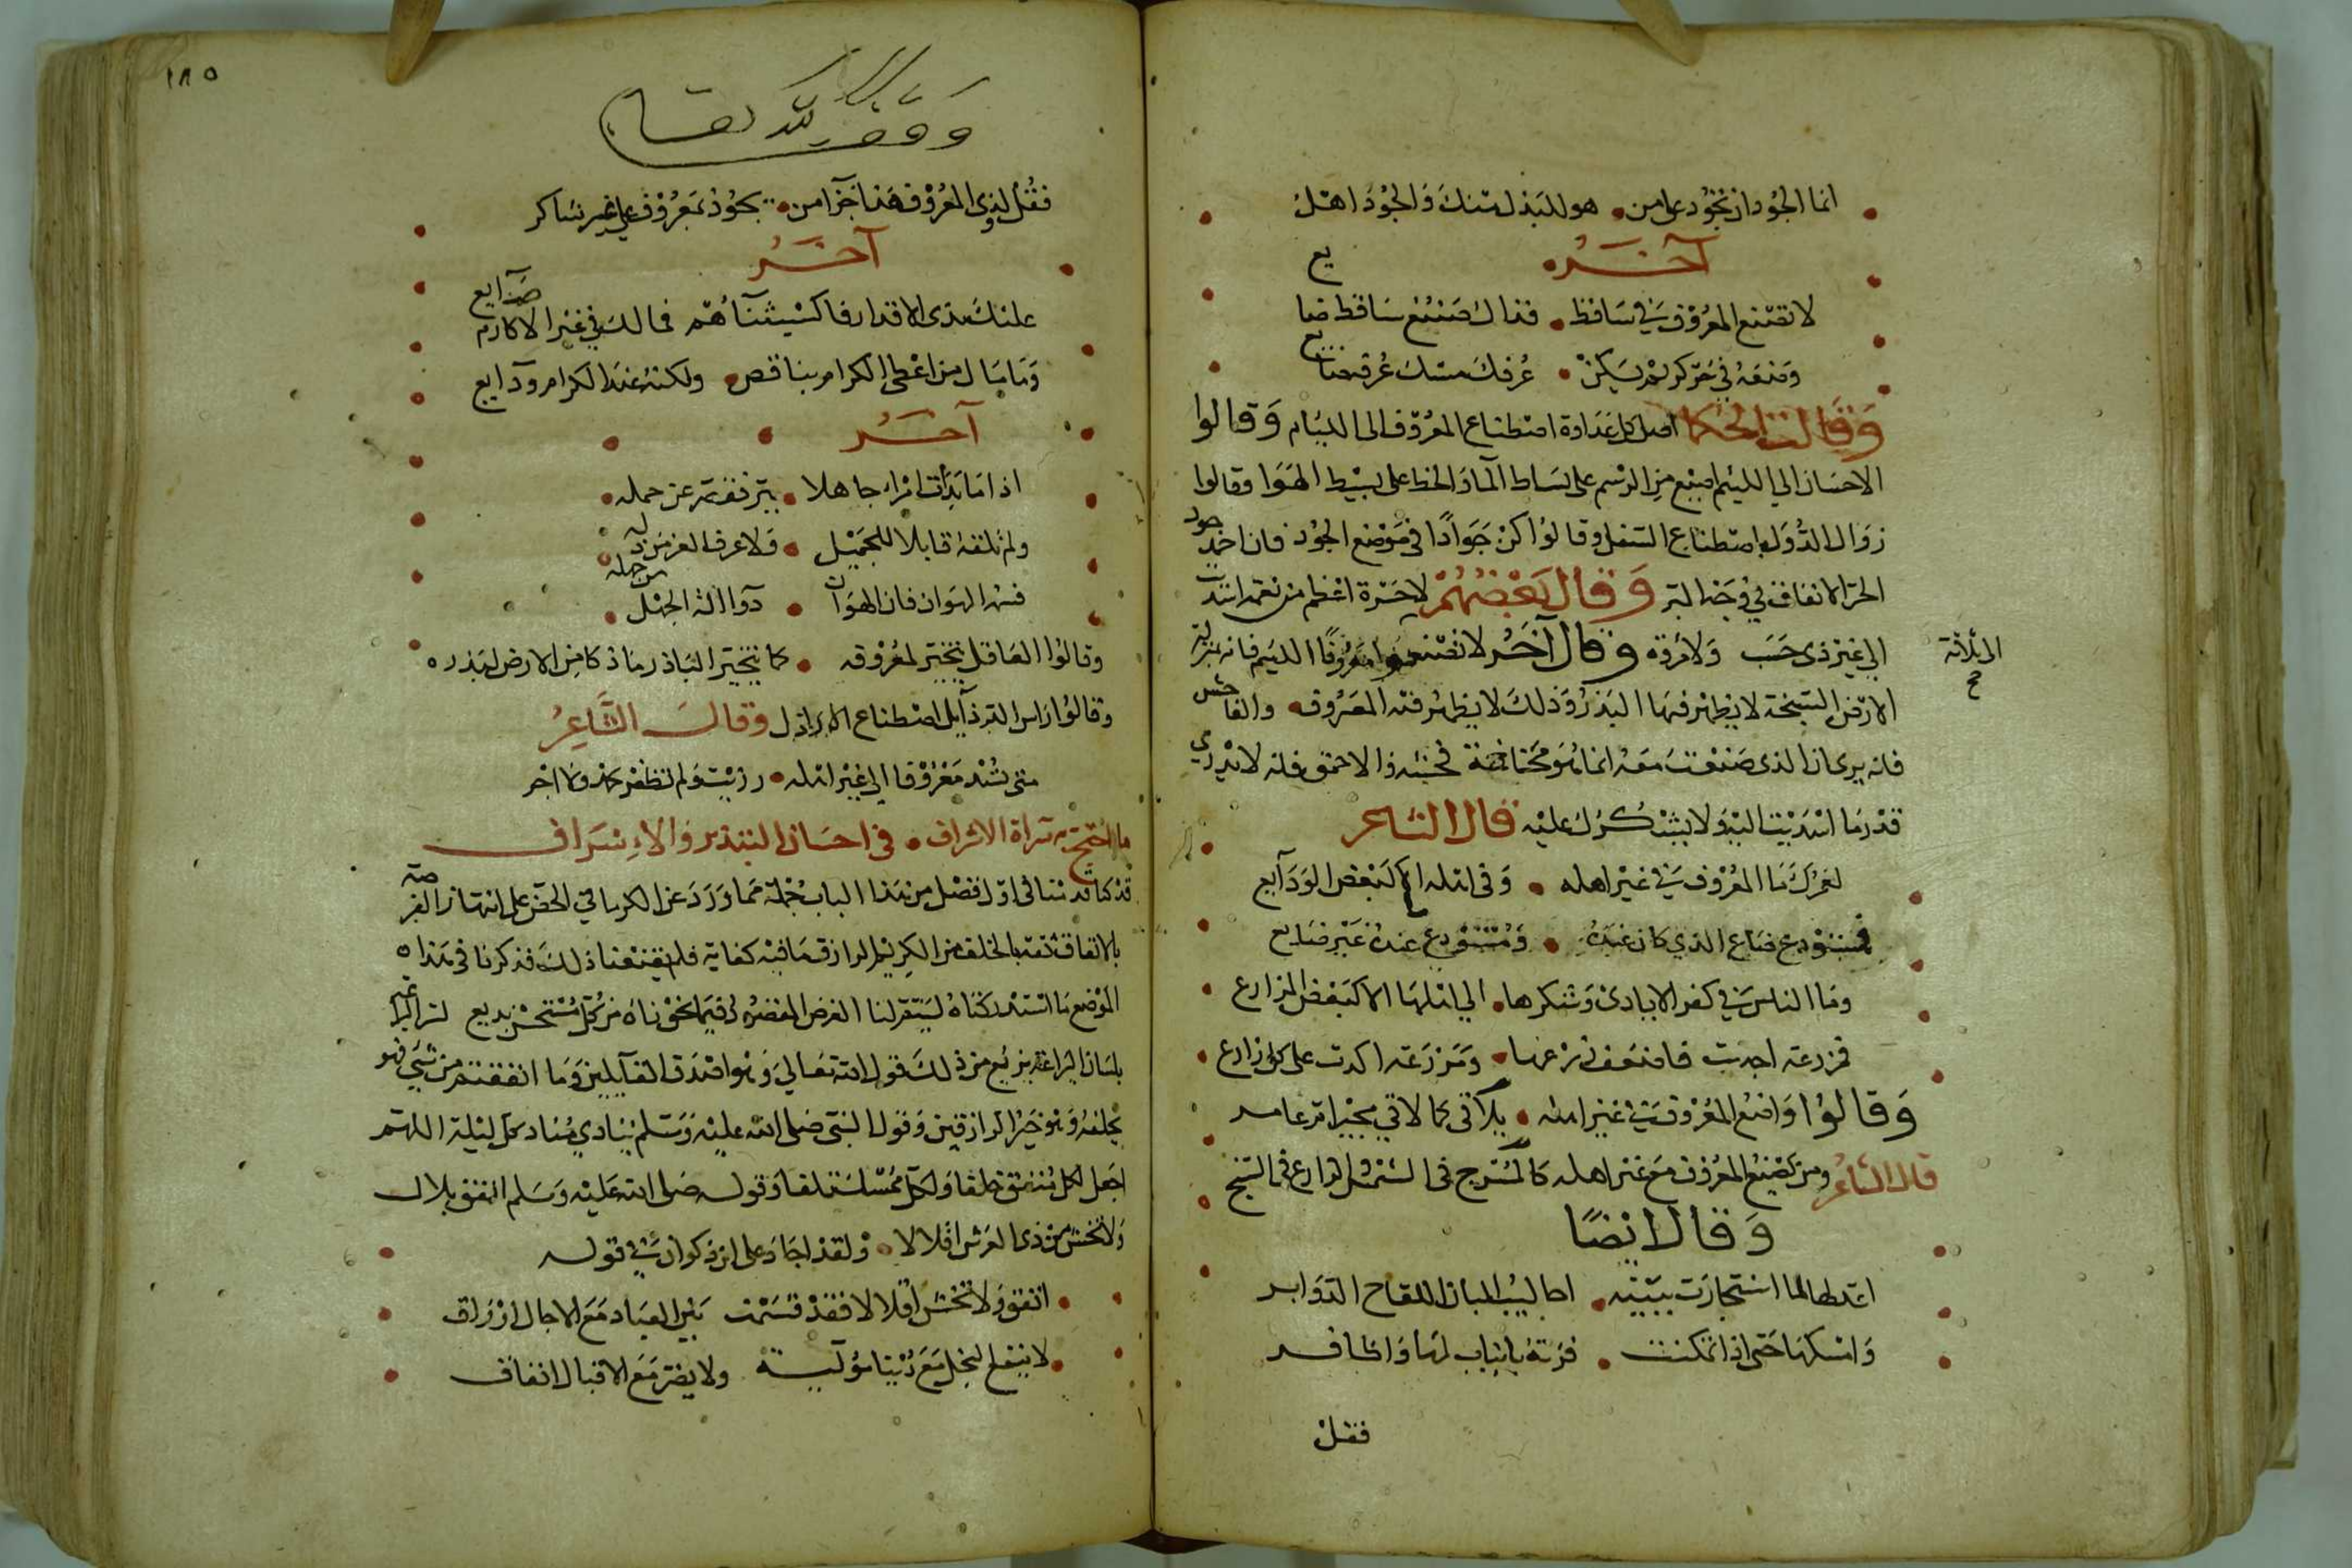 انما الجود ان تجود على من هو للبذل منك والجود اهل
آخر
لا تصنع المعروف في ساقط فذاك صنع ساقط ضايع
وضعه في حر كريم يكن عرفك مسك عرفه ضايع
وقالت الحكما اصل كل عداوة اصطناع المعروف الى اللئام وقالوا
الاحسان الى اللئيم اضيع من الرسم على بساط الما والخط على بسيط الهوا وقالوا
زوال الدول باصطناع السفل وقالوا كن جوادا في موضع الجود فان احمد جود
الحر الانفاق في وجه البر وقال بعضهم لا حسرة اعظم من نعمة اسديت
الى غير ذي حسب ولا مروه وقال آخر لا تصنعوا معروفا اللئيم فانه بمنزلة
الى ثلاثة
الارض السبخة لا يظهر فيها البذر وذلك لا يظهر فيه المعروف والفاحش
فانه يرى ان الذي صنعت معه انما هو مخافة فحشه والاحمق فانه لا يدري
قدر ما اسديت اليه ولا يشكرك عليه قال الشاعر
لعمرك ما المعروف في غير اهله وفي اهله الا كبعض الودايع
فمستودع ضاع الذي كان عنده ومستودع عنده غير ضايع
وما الناس في كفر الايادي وشكرها الى اهلها الا كبعض المزارع
فمزرعة اجدبت فاضعف زرعها ومزرعة اكدت على كل زارع
وقالوا واضع المعروف في غير اهله يلاقي كما لاقى مجير ام عامر
قال الشاعر ومن يصنع المعروف مع غير اهله كالمسرج في الشمس والزارع في السبخ
وقال ايضا
اعد لها لما استجارت ببيته احاليب البان اللقاح الدواير
واسكنها حتى اذا تمكنت فرته بانياب لها واظافر
فقل
١٨٥
وقف لله تعالى
فقل لذوي المعروف هذا جزا من يجود بمعروف على غير شاكر
آخر
عليك بذي الاقدار فاكسب ثناهم فمالك في غير الاكارم صنايع
وما مال من اعطى الكرام بناقص ولكنه عند الكرام ودايع
آخر
اذا ما بدات امرا جاهلا ببر فقصر عن حمله
ولم تلقه قابلا للجميل ولا عرف العز من ذله
فسه الهوان فان الهوان دوا لذي الجهل من جهله
وقالوا العاقل يتخير لمعروفه كما يتخير الباذر ما زكا من الارض لبذره
وقالوا راس الرذايل اصطناع الاراذل وقال الشاعر
متى تسد معروفا الى غير اهله رزيت ولم تظفر بحمد ولا اجر
ما احتج به سراة الاشراف في احسان التبذير والاسراف
قد كنا قدمنا في اول فصل من هذا الباب جملة مما ورد عن الكرما في الحض على انتهاز الفرصة
بالانفاق ثقة بالخلف من الكريم الرازق ما فيه كفاية فلم يقنعنا ذلك فذكرنا في هذا
الموضع ما استدركناه ليتقر لنا الغرض المقصود فيما نحوناه من كل مستحسن بديع
بلسان اليراعة من ذلك قول الله تعالى وهو اصدق القايلين وما انفقتم من شي فهو
يخلفه وهو خير الرازقين وقول النبي صلى الله عليه وسلم ينادي مناد كل ليلة اللهم
اجعل لكل منفق خلفا ولكل ممسك تلفا وقوله صلى الله عليه وسلم انفق بلال
ولا تخش من ذي العرش اقلالا ولقد اجاد على ابن ذكوان في قوله
انفق ولا تخش اقلالا فقد قسمت بين العباد مع الاجال ارزاق
لا ينفع البخل مع دنيا مولية ولا يضر مع الاقبال انفاق